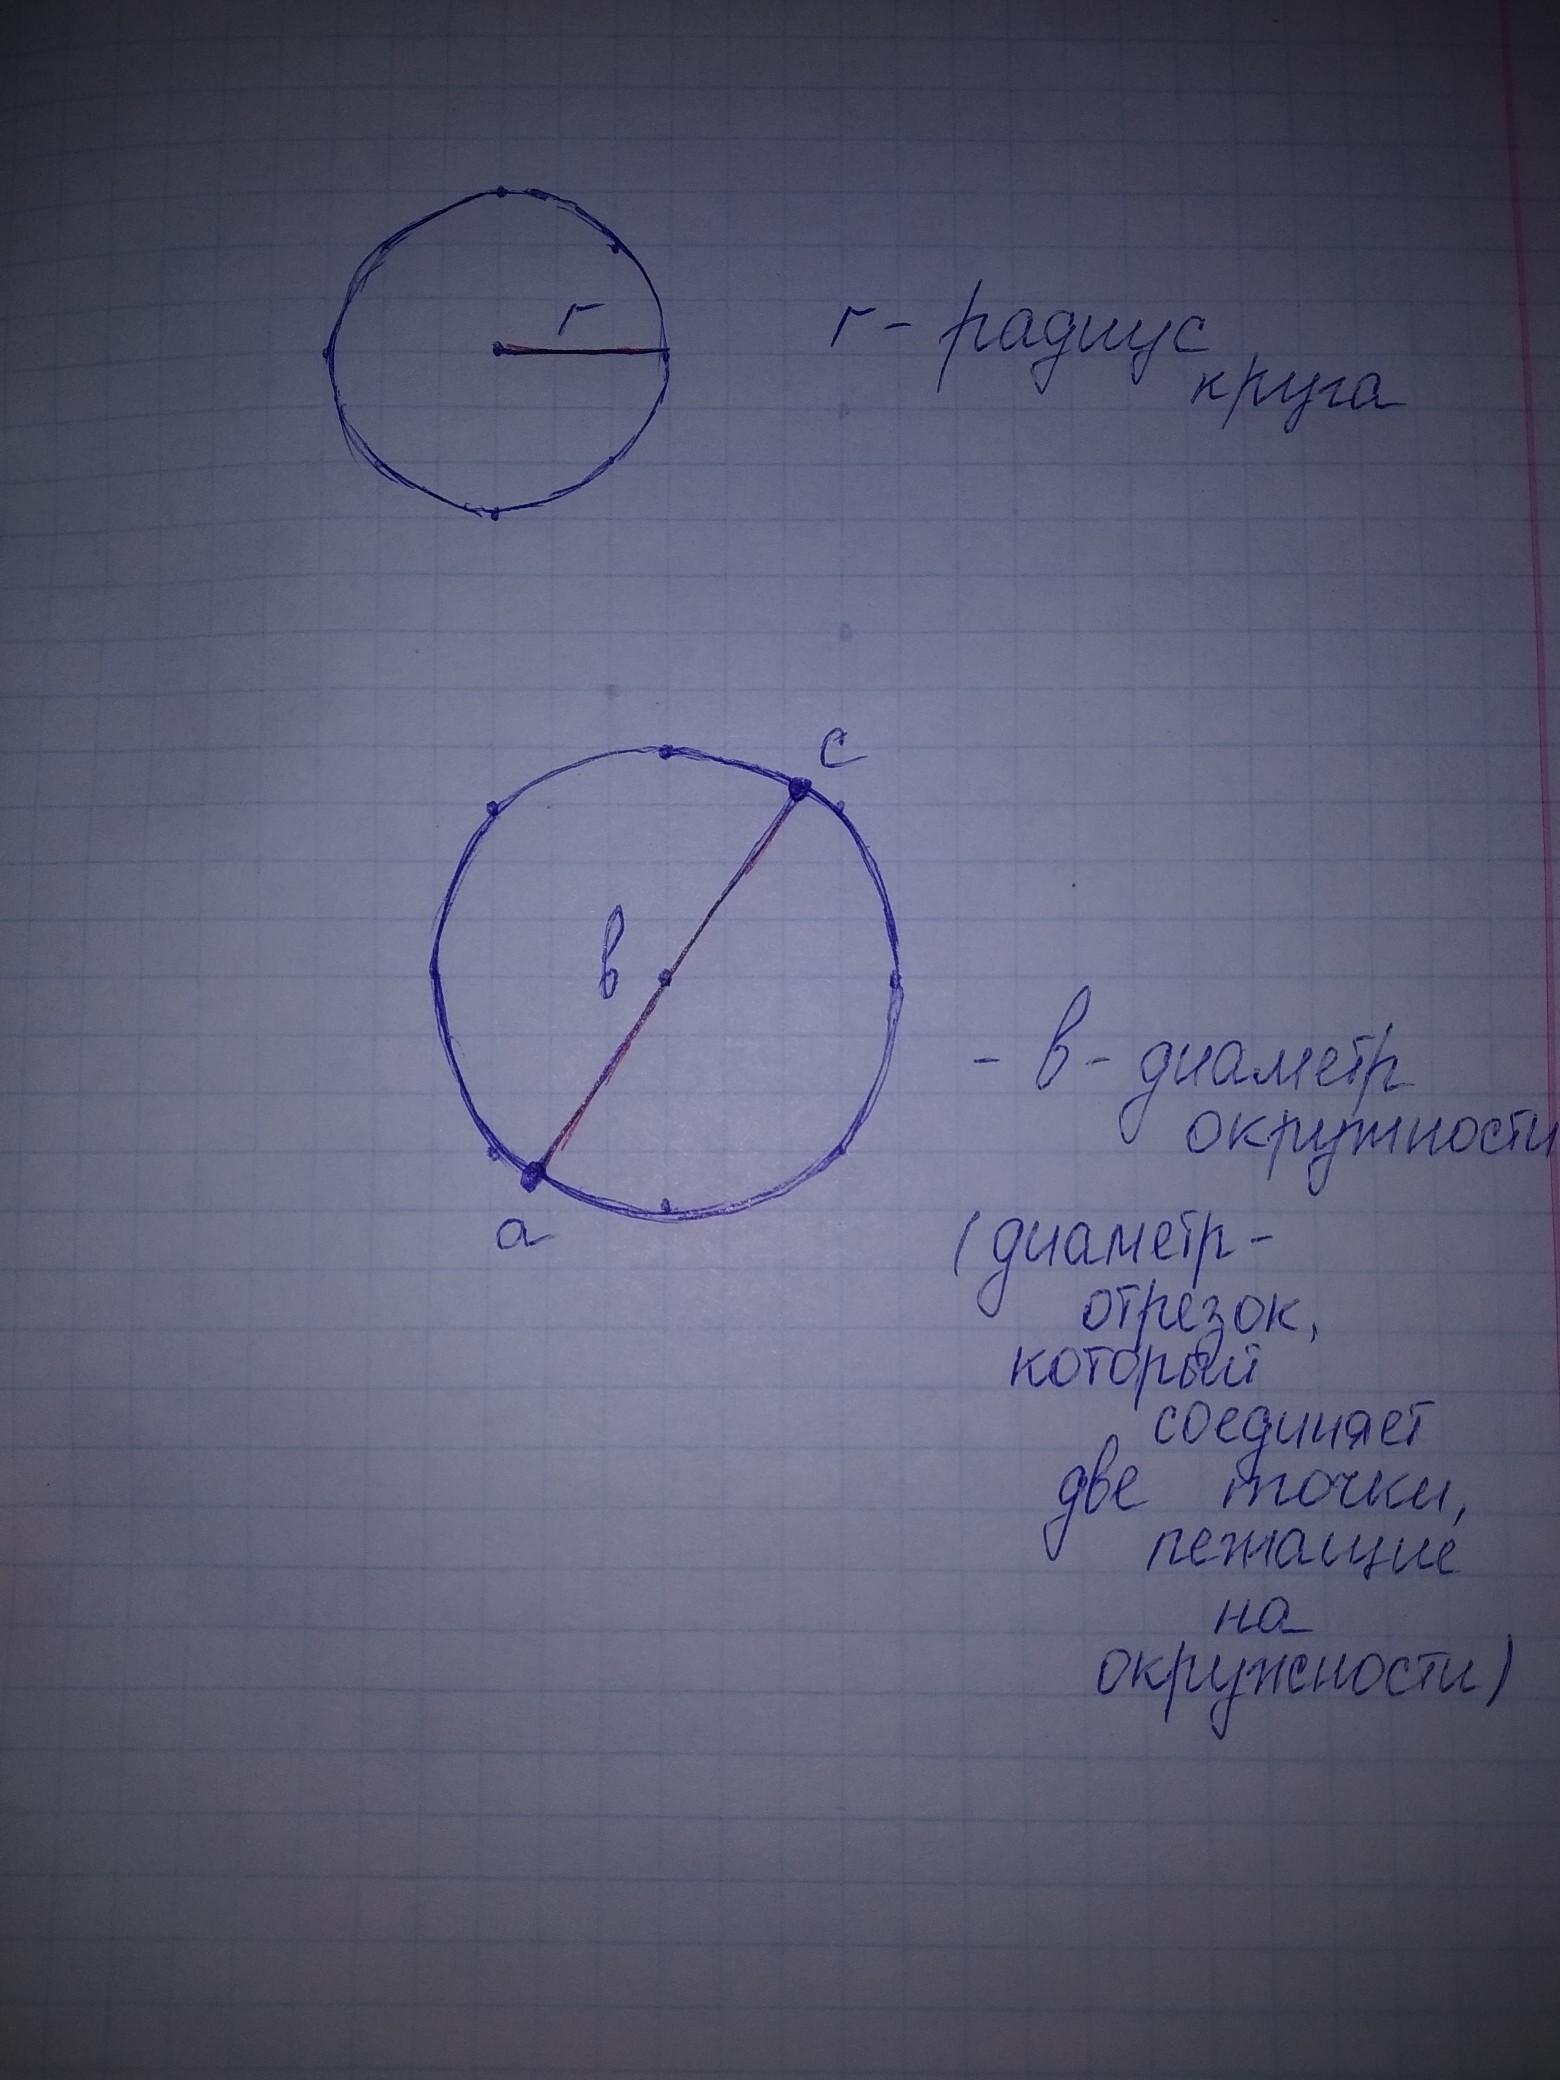 r
r - радиус
круга
c
в
- в - диаметр
окружности
a
(диаметр -
отрезок,
который
соединяет
две точки,
лежащие
на
окружности)